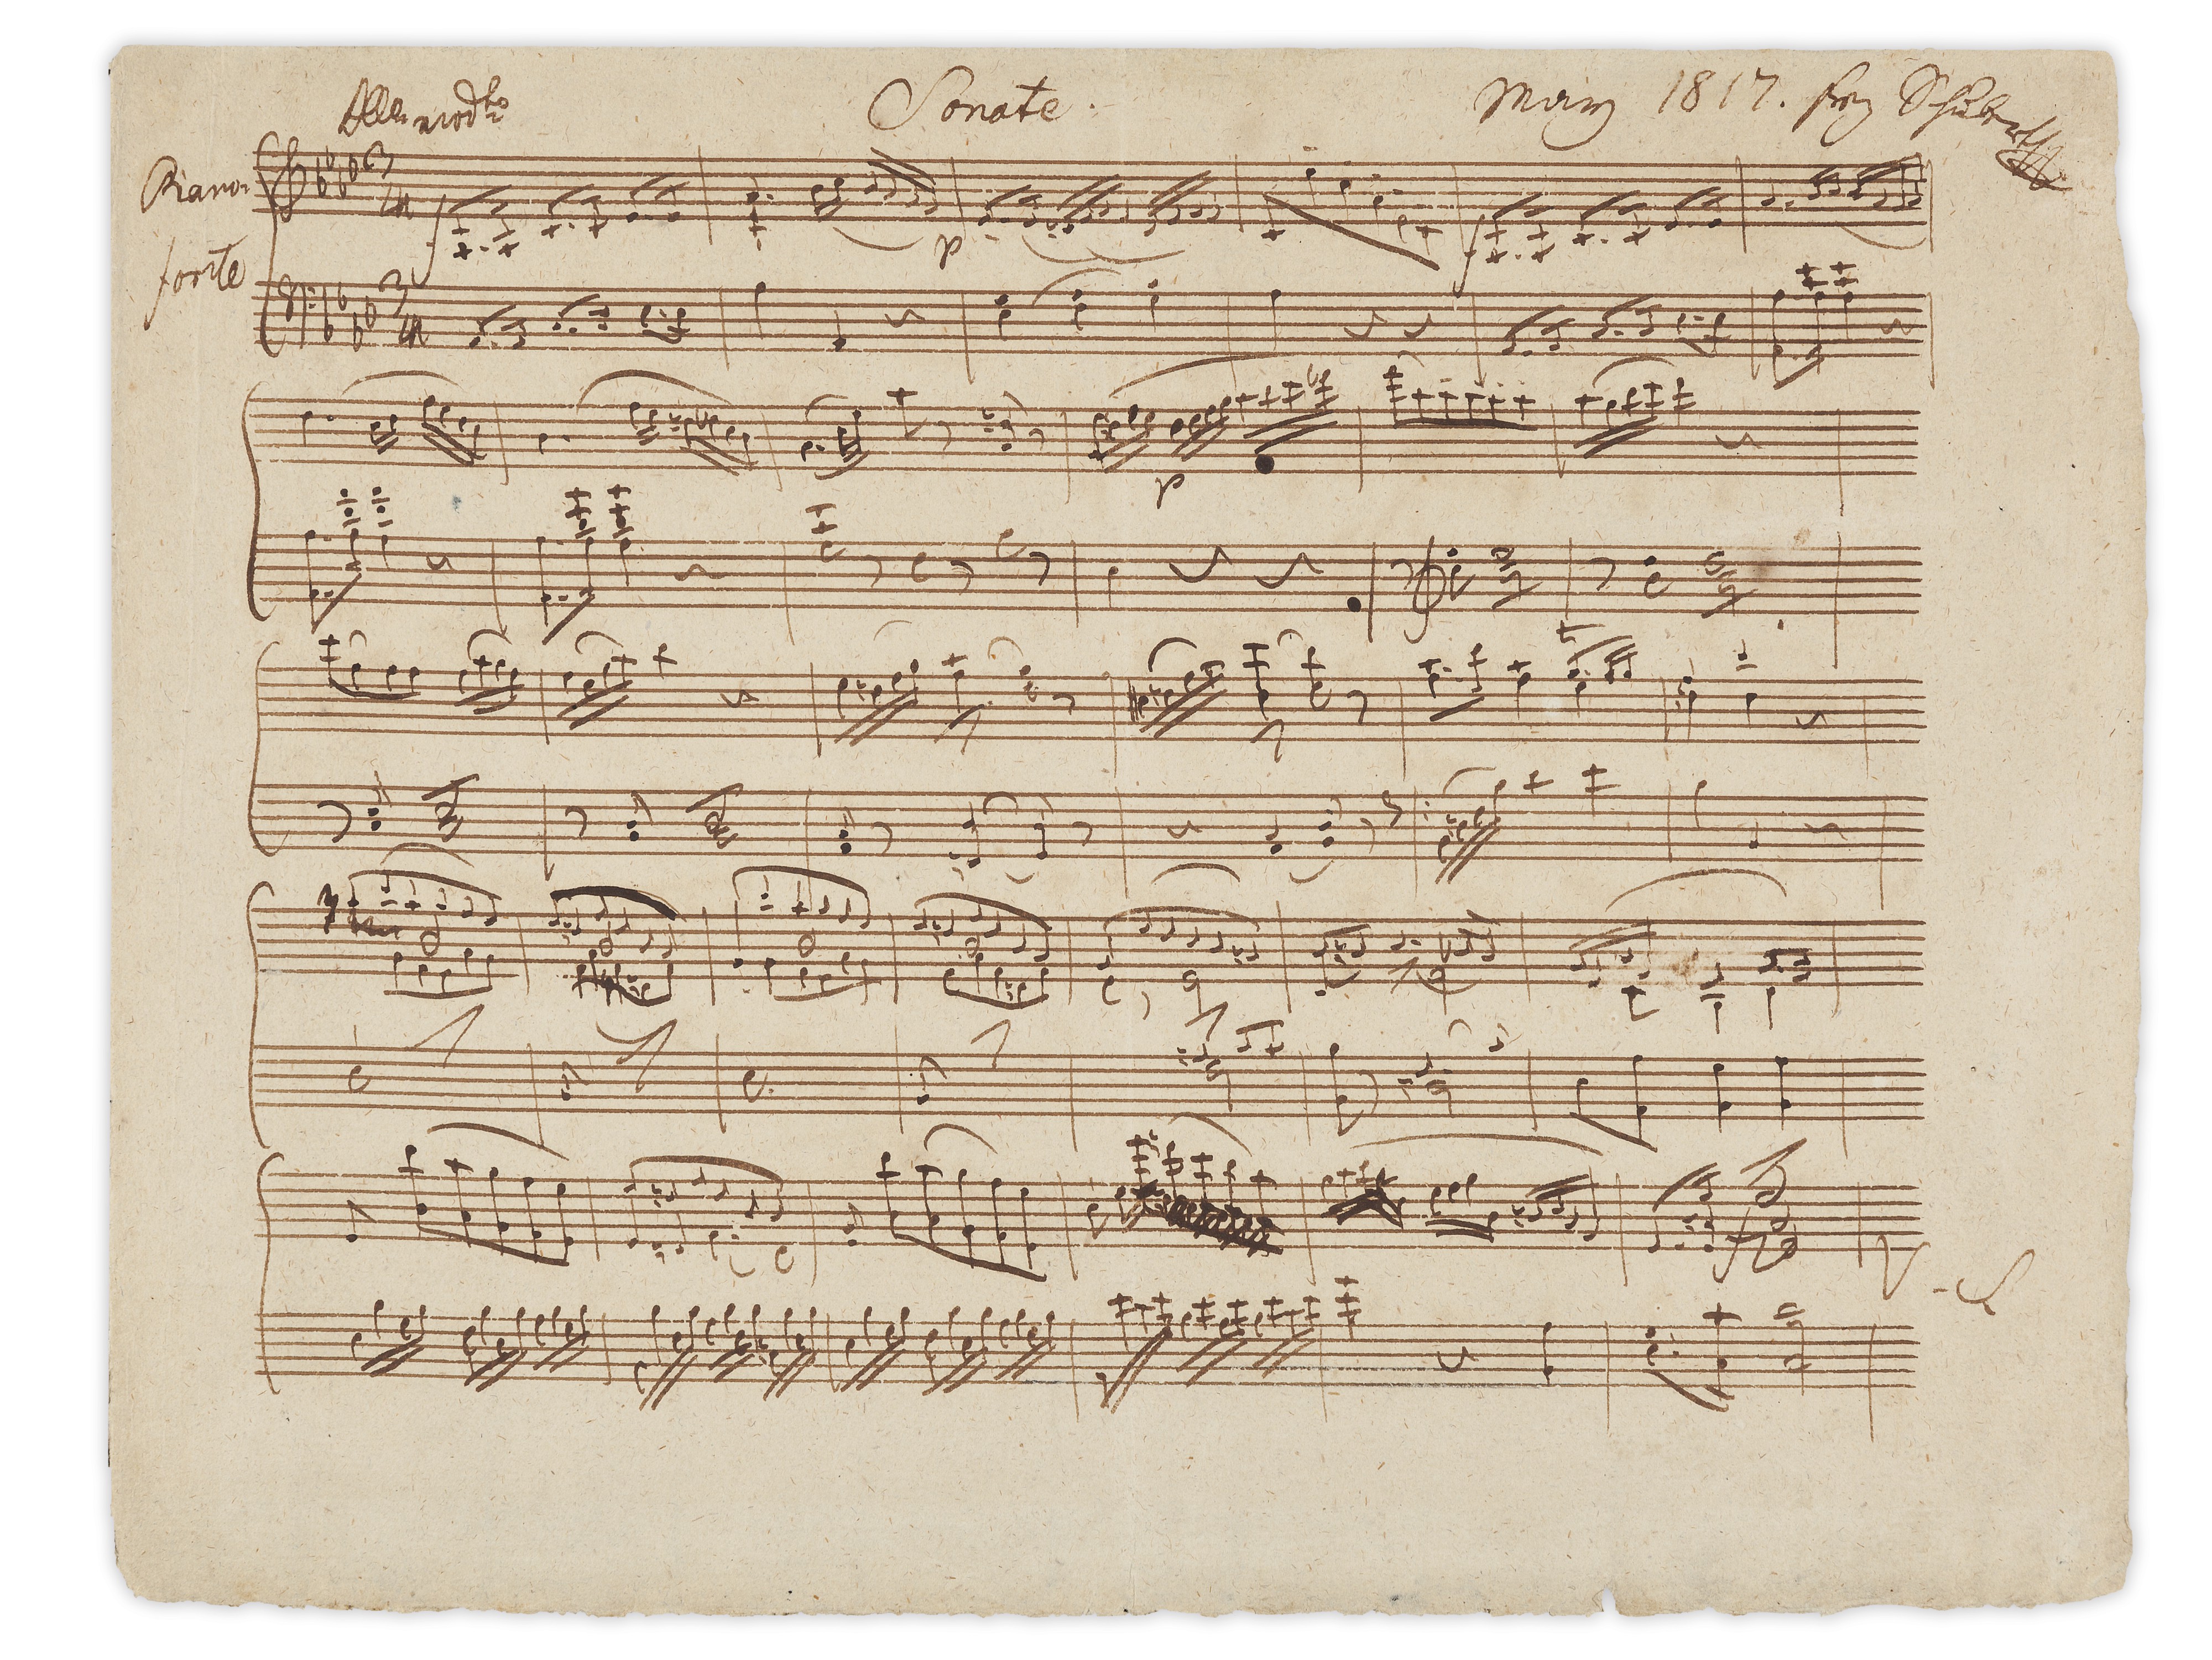 All: modto Sonate May 1817. Frz Schubert
Piano-
forte
3/4
f p f
3/4
p
f
V-S